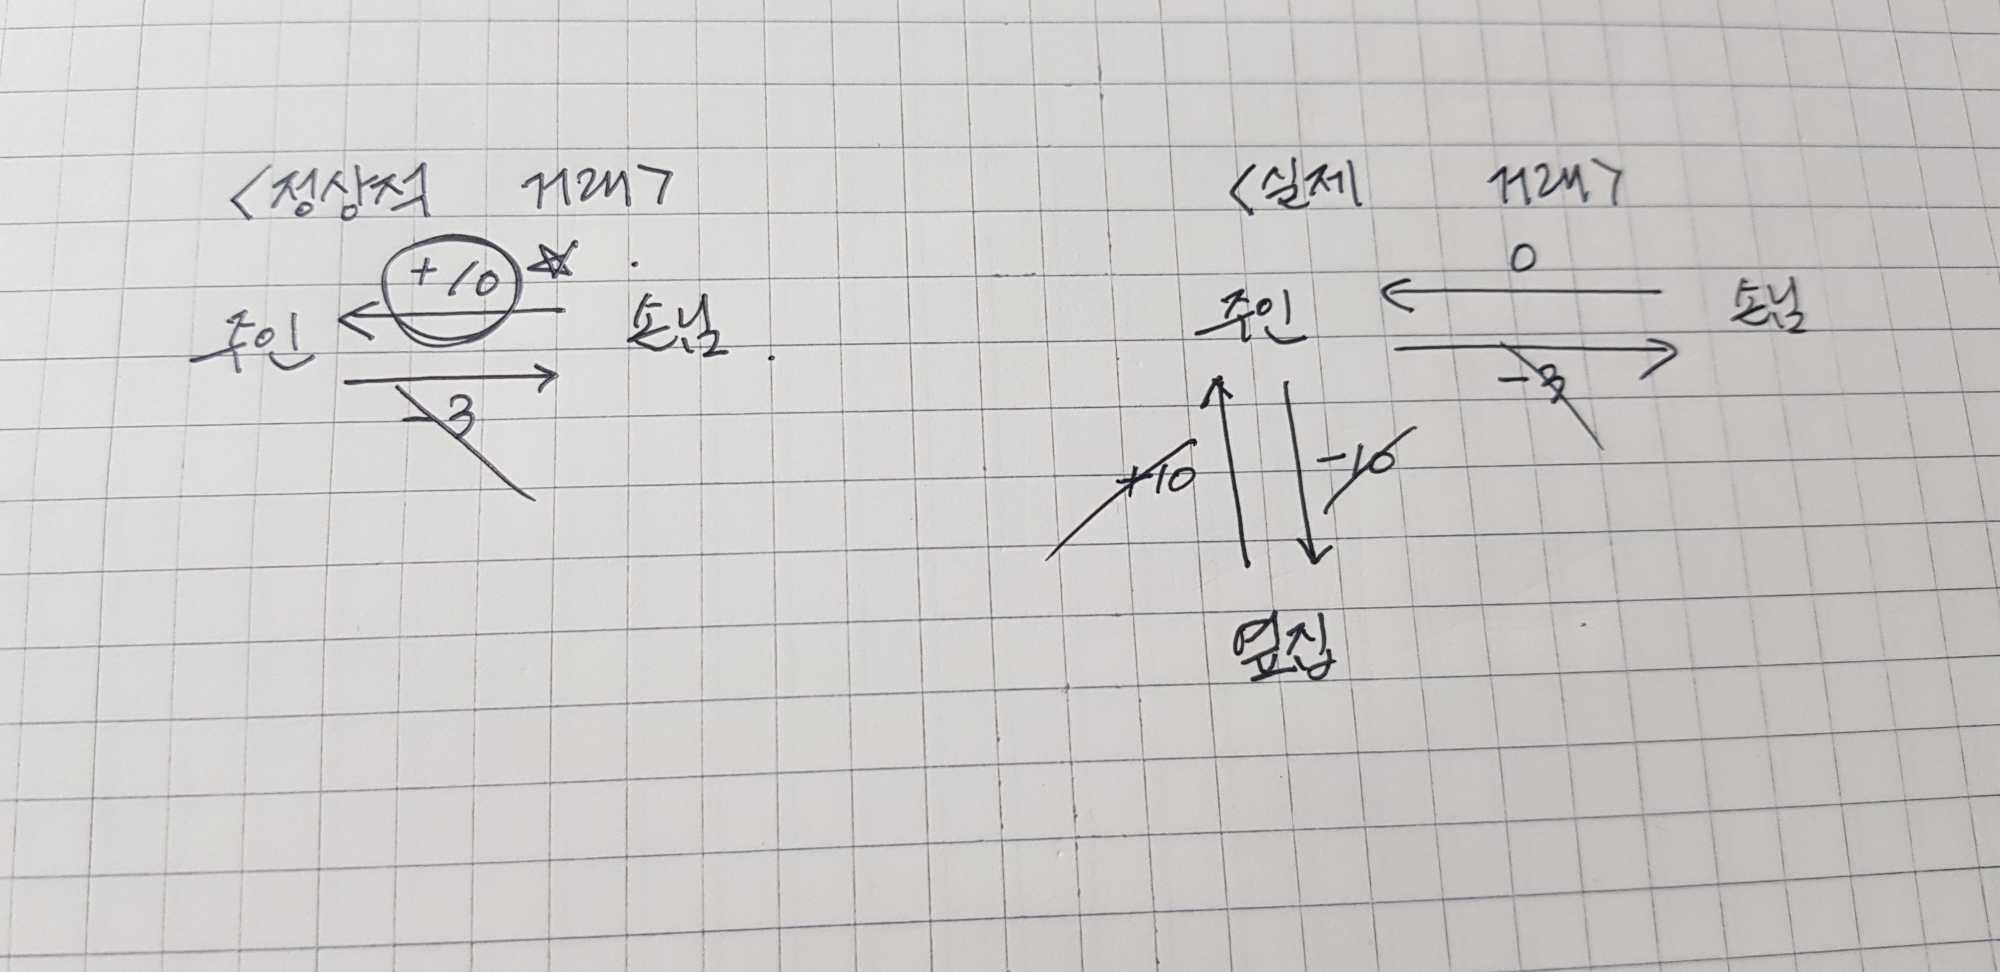 <정상적 거래>
+10 ☆
주인 손님
-3
<실제 거래>
0
주인 손님
-3
+10 -10
옆집